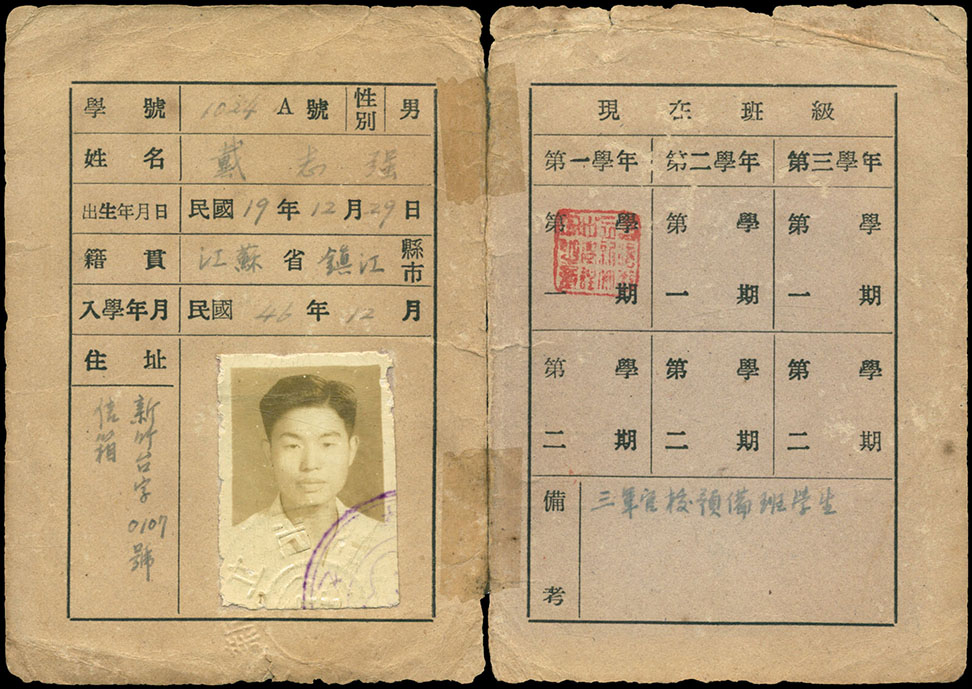 學號 1024 A號 性別 男
姓名 戴志強
出生年月日 民國19年12月29日
籍貫 江蘇省鎮江縣市
入學年月 民國46年12月
住址
新竹台字0107號
信箱
現在班級
第一學年 第二學年 第三學年
第一學期 第一學期 第一學期
第二學期 第二學期 第二學期
備考 三軍官校預備班學生